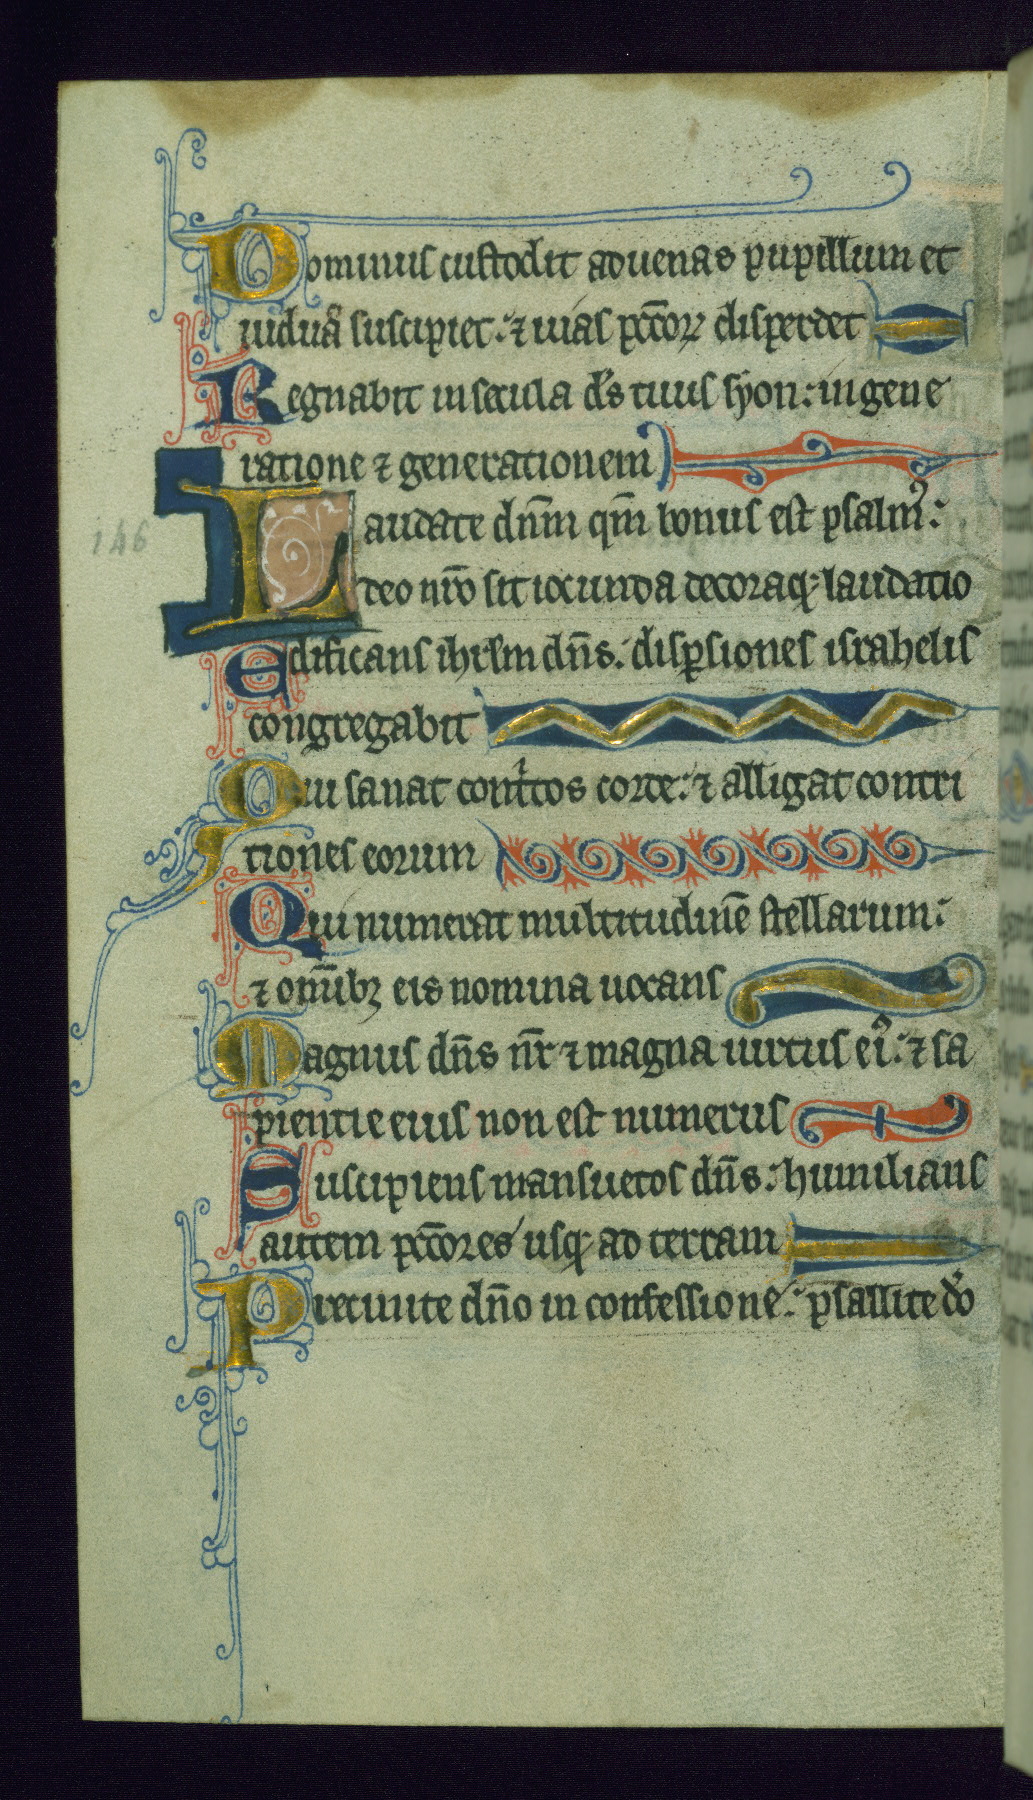 Dominus custodit aduenas pupillum et
uiduā suscipiet: ⁊ uias pc̄coꝝ disperdet
Regnabit in secula ds̄ tuus syon: in gene
ratione ⁊ generationem
146
Laudate dn̄m qm̄ bonus est psalm᷒:
deo nr̄o sit iocunda decoraqꝫ laudatio
Edificans ihrlm̄ dn̄s: disꝑsiones israhelis
congregabit
Qui sanat contͥtos corde: ⁊ alligat contri
tiones eorum
Qui numerat multitudinē stellarum:
⁊ om̄ibꝫ eis nomina uocans
Magnus dn̄s nr̄ ⁊ magna uirtus ei᷒: ⁊ sa
pientie eius non est numerus
Suscipiens mansuetos dn̄s: humilians
autem pc̄cores usqꝫ ad terram
Precinite dn̄o in confessione: psallite dō